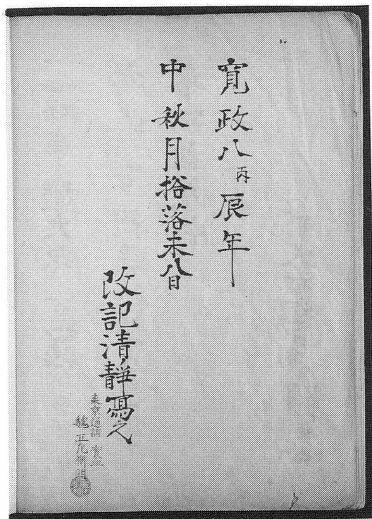 寛政八丙辰年
中秋月拾落未八日
改記清靜寫之